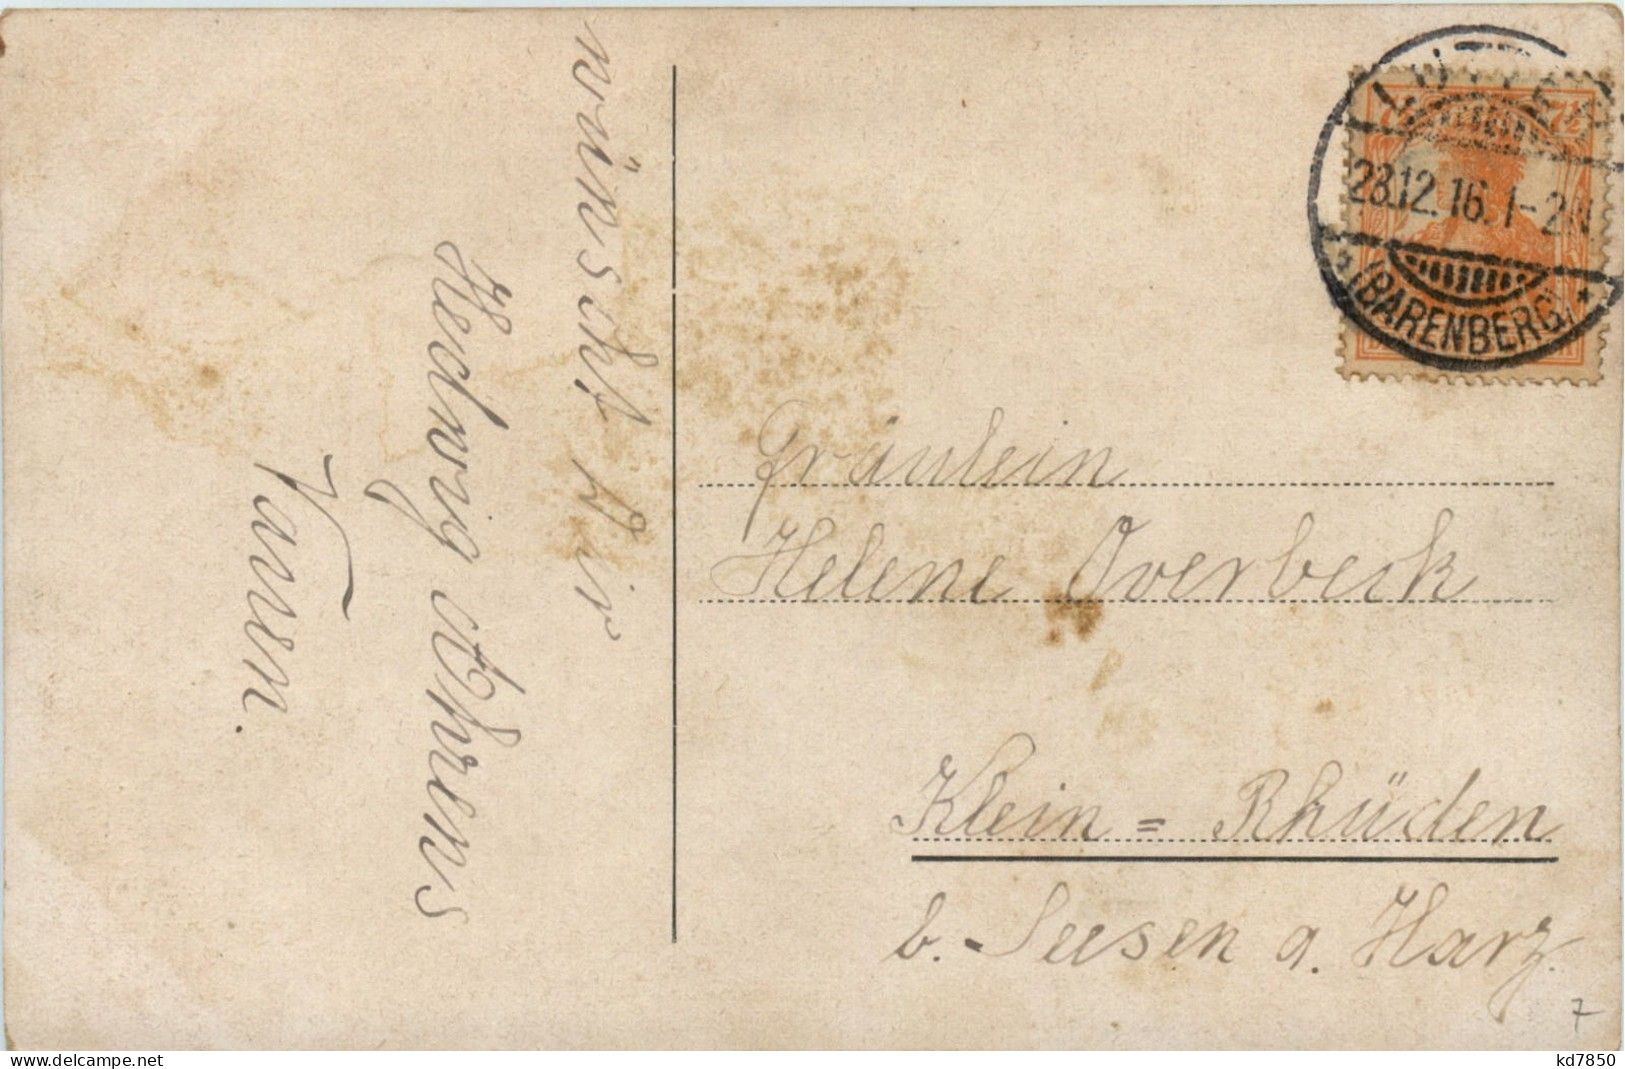 wünscht Dir
Hedwig Ahrens
LUTTER
28.12.16. 1-2 N
* (BARENBERG) *
7½
Fräulein
Helene Overbeck
Klein = Rhüden
b. Seesen a. Harz.
7
kd7850
https://www.delcampe.net